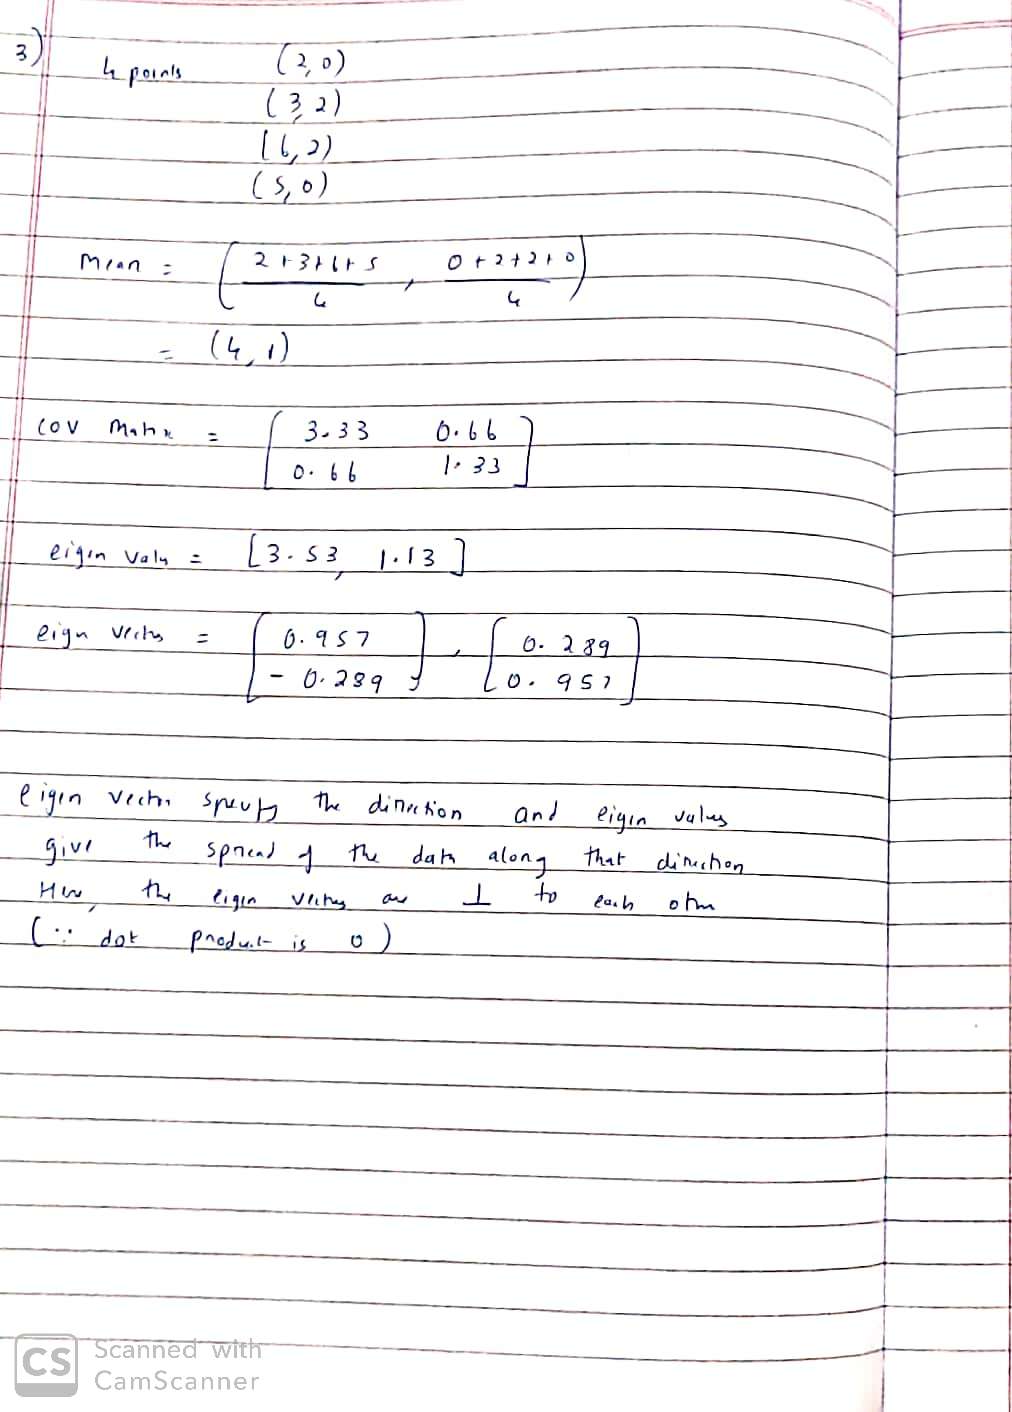 3)
4 points (2, 0)
(3, 2)
(6, 2)
(5, 0)
Mean = ( 2+3+6+5 / 4 , 0+2+2+0 / 4 )
= (4, 1)
Cov Matrix = [ 3.33 0.66
0.66 1.33 ]
eigen valu = [3.53, 1.13]
eign vectrs = [ 0.957 , [ 0.289
- 0.289 ] 0.957 ]
eigen vector specify the direction and eigen values
give the spread of the data along that direction
Here, the eigen vectrs are ⊥ to each other
(∵ dot product is 0)
CS Scanned with
CamScanner